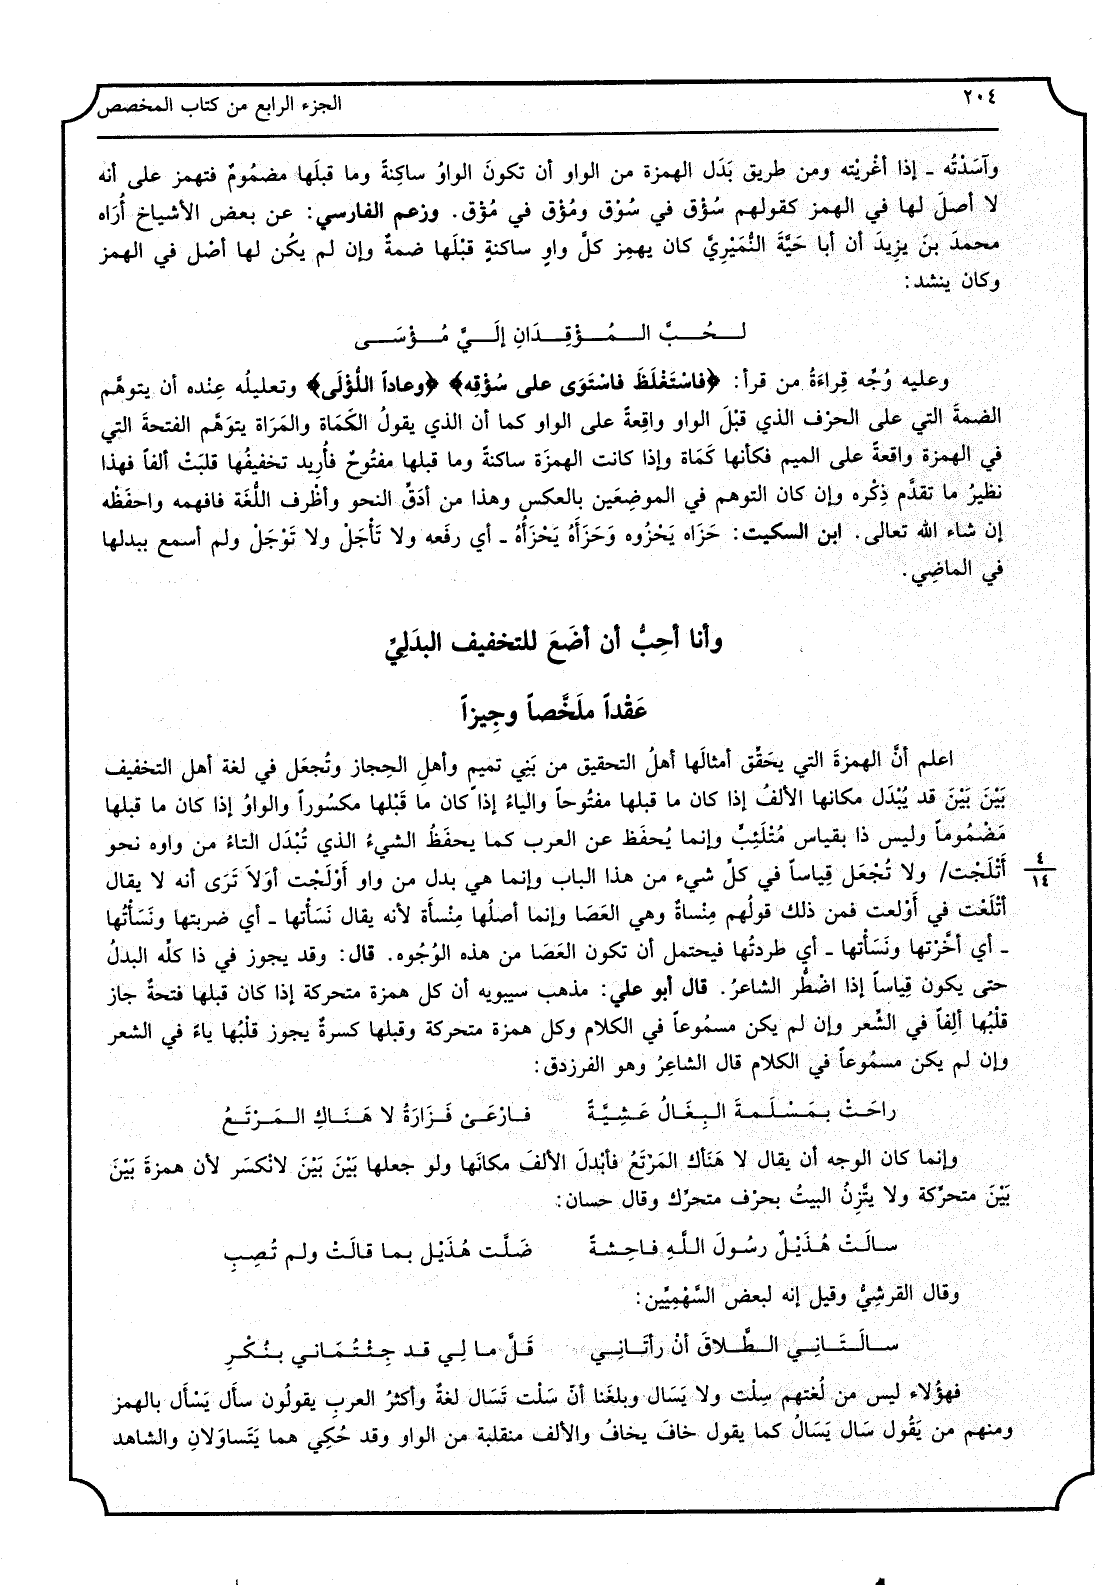 ٢٠٤
الجزء الرابع من كتاب المخصص
وآسَدْتُه ـ إذا أغْريْته ومن طريق بَدَل الهمزة من الواو أن تكونَ الواوُ ساكِنةً وما قبلَها مضمُومٌ فتهمز على أنه
لا أصلَ لها في الهمز كقولهم سُؤْق في سُوْق ومُؤْق في مُوْق. وزعم الفارسي: عن بعض الأشياخ أُرَاه
محمدَ بنَ يزِيدَ أن أبا حَيَّةَ النُّمَيْرِيَّ كان يهمِز كلَّ واوٍ ساكنةٍ قبْلَها ضمةٌ وإن لم يكُن لها أصْل في الهمز
وكان ينشد:
لـحُـبَّ الـمُـؤْقِـدَانِ إلَـيَّ مُـؤْسَـى
وعليه وُجِّه قِراءَةُ من قرأ: ﴿فاسْتَغْلَظَ فاسْتَوَى على سُؤْقِه﴾ ﴿وعاداً اللُّؤْلَى﴾ وتعليلُه عِنْده أن يتوهَّم
الضمةَ التي على الحرْف الذي قبْلَ الواو واقِعةً على الواو كما أن الذي يقولُ الكَمَاة والمَرَاة يتوَهَّم الفتحةَ التي
في الهمزة واقعةً على الميم فكأنها كَمَاة وإذا كانت الهمزَة ساكنةً وما قبلها مفتُوحٌ فأُرِيد تخفيفُها قلبَتْ ألفاً فهذا
نظيرُ ما تقدَّم ذِكْره وإن كان التوهم في الموضِعَين بالعكس وهذا من أدَقِّ النحو وأظْرف اللُّغَة فافهمه واحفَظْه
إن شاء الله تعالى. ابن السكيت: حَزَاه يَحْزُوه وَحَزَأَهُ يَحْزَأُهُ ـ أي رفَعه ولا تَأْجَلْ ولا تَوْجَلْ ولم أسمع ببدلها
في الماضِي.
وأنا أحِبُّ أن أضَعَ للتخفيف البدَلِيِّ
عَقْداً ملَخَّصاً وجِيزاً
اعلم أنَّ الهمزةَ التي يحَقِّق أمثالَها أهلُ التحقيق من بَنِي تميمٍ وأهلِ الحِجاز وتُجعَل في لغة أهل التخفيف
بَيْنَ بَيْنَ قد يُبْدَل مكانها الألفُ إذا كان ما قبلها مفتُوحاً والياءُ إذا كان ما قَبْلها مكسُوراً والواوُ إذا كان ما قبلها
مَضْمُوماً وليس ذا بقياس مُتْلَئِبِّ وإنما يُحفَظ عن العرب كما يحفَظُ الشيءُ الذي تُبْدَل التاءُ من واوه نحو
أَتْلَجْت/ ولا تُجْعَل قِياساً في كلِّ شيء من هذا الباب وإنما هي بدل من واو أَوْلَجْت أوَلاَ تَرَى أنه لا يقال
٤
١٤
أتْلَعْت في أَوْلعت فمن ذلك قولُهم مِنْساةٌ وهي العَصَا وإنما أصلُها مِنْسأَة لأنه يقال نَسَأْتها ـ أي ضربتها ونَسَأْتُها
ـ أي أخَّرْتها ونَسَأْتها ـ أي طردتُها فيحتمل أن تكون العَصَا من هذه الوُجُوه. قال: وقد يجوز في ذا كلِّه البدلُ
حتى يكون قِياساً إذا اضْطُر الشاعرُ. قال أبو علي: مذهب سيبويه أن كل همزة متحركة إذا كان قبلها فتحةٌ جاز
قلْبُها ألِفاً في الشِّعر وإن لم يكن مسمُوعاً في الكلام وكل همزة متحركة وقبلها كسرةٌ يجوز قلْبُها ياءً في الشعر
وإن لم يكن مسمُوعاً في الكلام قال الشاعِرُ وهو الفرزدق:
راحَتْ بـمَسْلَمةَ البِغَالُ عَشِيَّةً فـارْعَـيْ فَـزَارَةُ لا هَـنَـاكِ الـمَـرْتَـعُ
وإنما كان الوجه أن يقال لا هَنَأك المَرْتَعُ فأبْدلَ الألفَ مكانَها ولو جعلها بَيْنَ بَيْنَ لانْكسَر لأن همزةَ بَيْنَ
بَيْنَ متحرِّكة ولا يتَّزِنُ البيتُ بحرْف متحرِّك وقال حسان:
سـالَتْ هُذَيْلٌ رسُولَ اللَّهِ فـاحِشةً ضَلَّت هُذَيْل بما قالَتْ ولم تُصِبِ
وقال القرشِيُّ وقيل إنه لبعض السَّهْمِيِّين:
سـالَتَـانِي الطَّلاقَ أنْ رأتَـانِي قَلَّ مـا لِي قد جِئْتُمَـاني بـنُكْرِ
فهؤُلاء ليس من لُغتهم سِلْت ولا يَسَال وبلغَنا أنّ سَلْت تَسَال لغةٌ وأكثرُ العربِ يقولُون سأَل يَسْأَل بالهمز
ومنهم من يَقُول سَال يَسَالُ كما يقول خافَ يخافُ والألف منقلبة من الواو وقد حُكِي هما يَتَساوَلانِ والشاهد